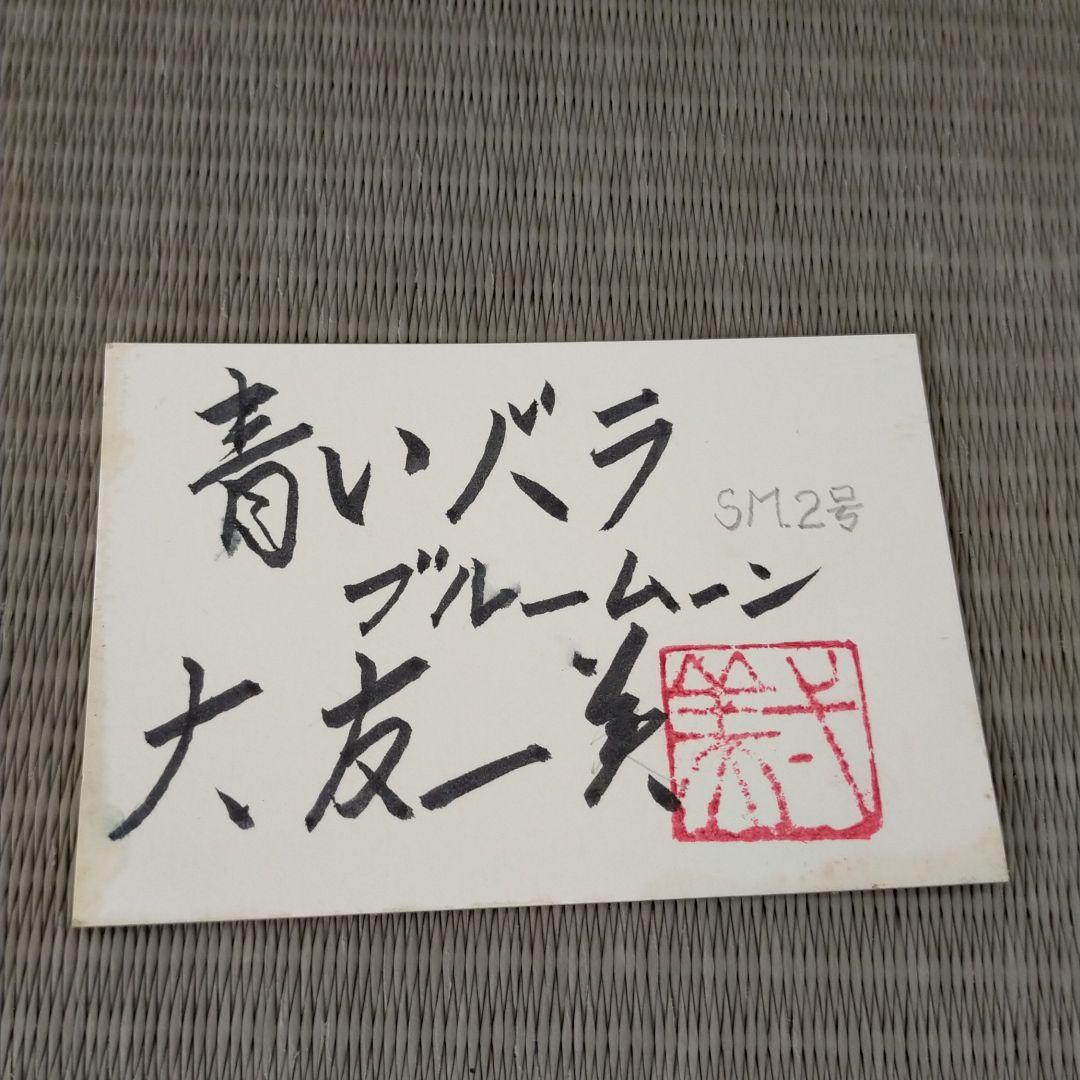 青いバラ
SM.2号
ブルームーン
大友一美